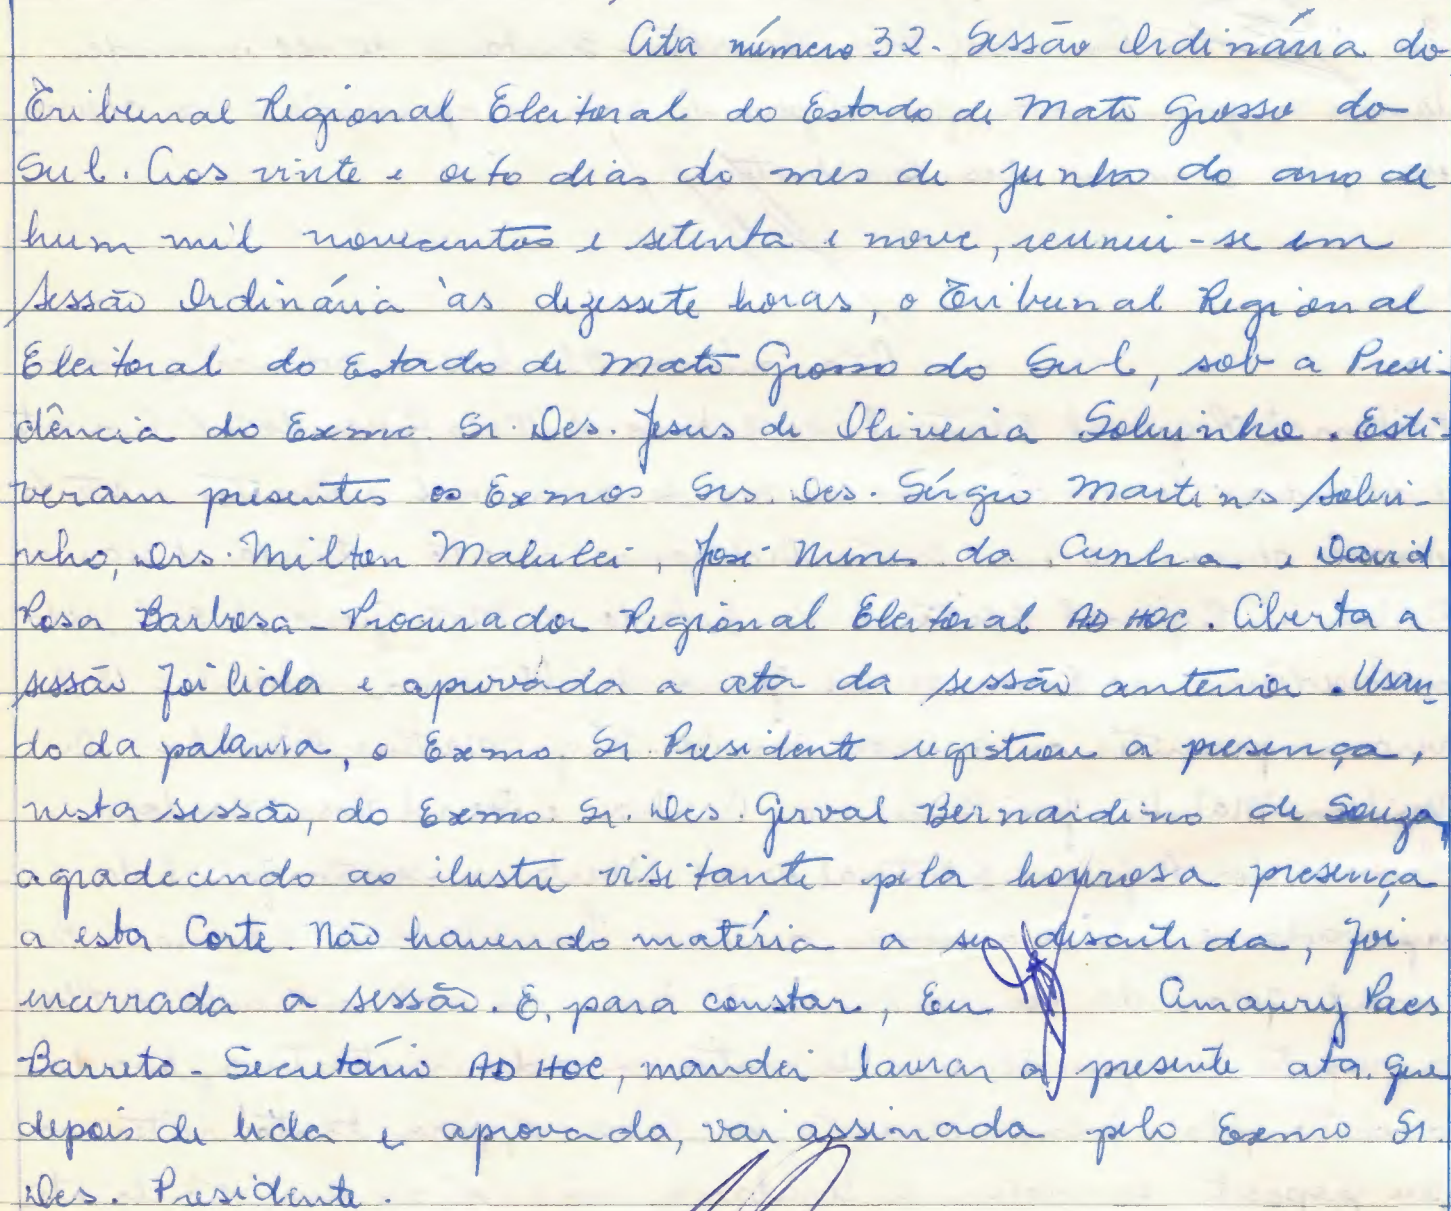 Ata número 32. Sessão Ordinária do
Tribunal Regional Eleitoral do Estado de Mato Grosso do
Sul. Aos vinte e oito dias do mes de junho do ano de
hum mil novecentos e setenta e nove, reuniu-se em
Sessão Ordinária às dezessete horas, o Tribunal Regional
Eleitoral do Estado de Mato Grosso do Sul, sob a Presi-
dência do Exmo. Sr. Des. Jesus de Oliveira Sobrinho. Esti-
veram presentes os Exmos Srs. Des. Sérgio Martins Sobri-
nho, Drs. Milton Malulei, José Nunes da Cunha e David
Rosa Barbosa - Procurador Regional Eleitoral AD HOC. Aberta a
sessão foi lida e aprovada a ata da sessão anterior. Usan-
do da palavra, o Exmo. Sr. Presidente registrou a presença,
nesta sessão, do Exmo. Sr. Des. Gerval Bernardino de Souza,
agradecendo ao ilustre visitante pela honrosa presença
a esta Corte. Não havendo matéria a ser discutida, foi
encerrada a sessão. E, para constar, Eu Amaury Paes
Barreto - Secretário AD HOC, mandei lavrar a presente ata. que
depois de lida e aprovada, vai assinada pelo Exmo Sr.
Des. Presidente.